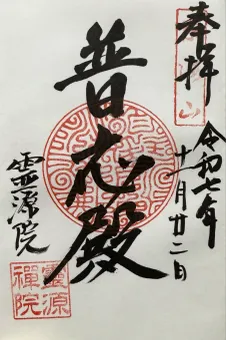 奉拝
令和七年
十一月廿二日
普応殿
霊源院
霊源
禅院